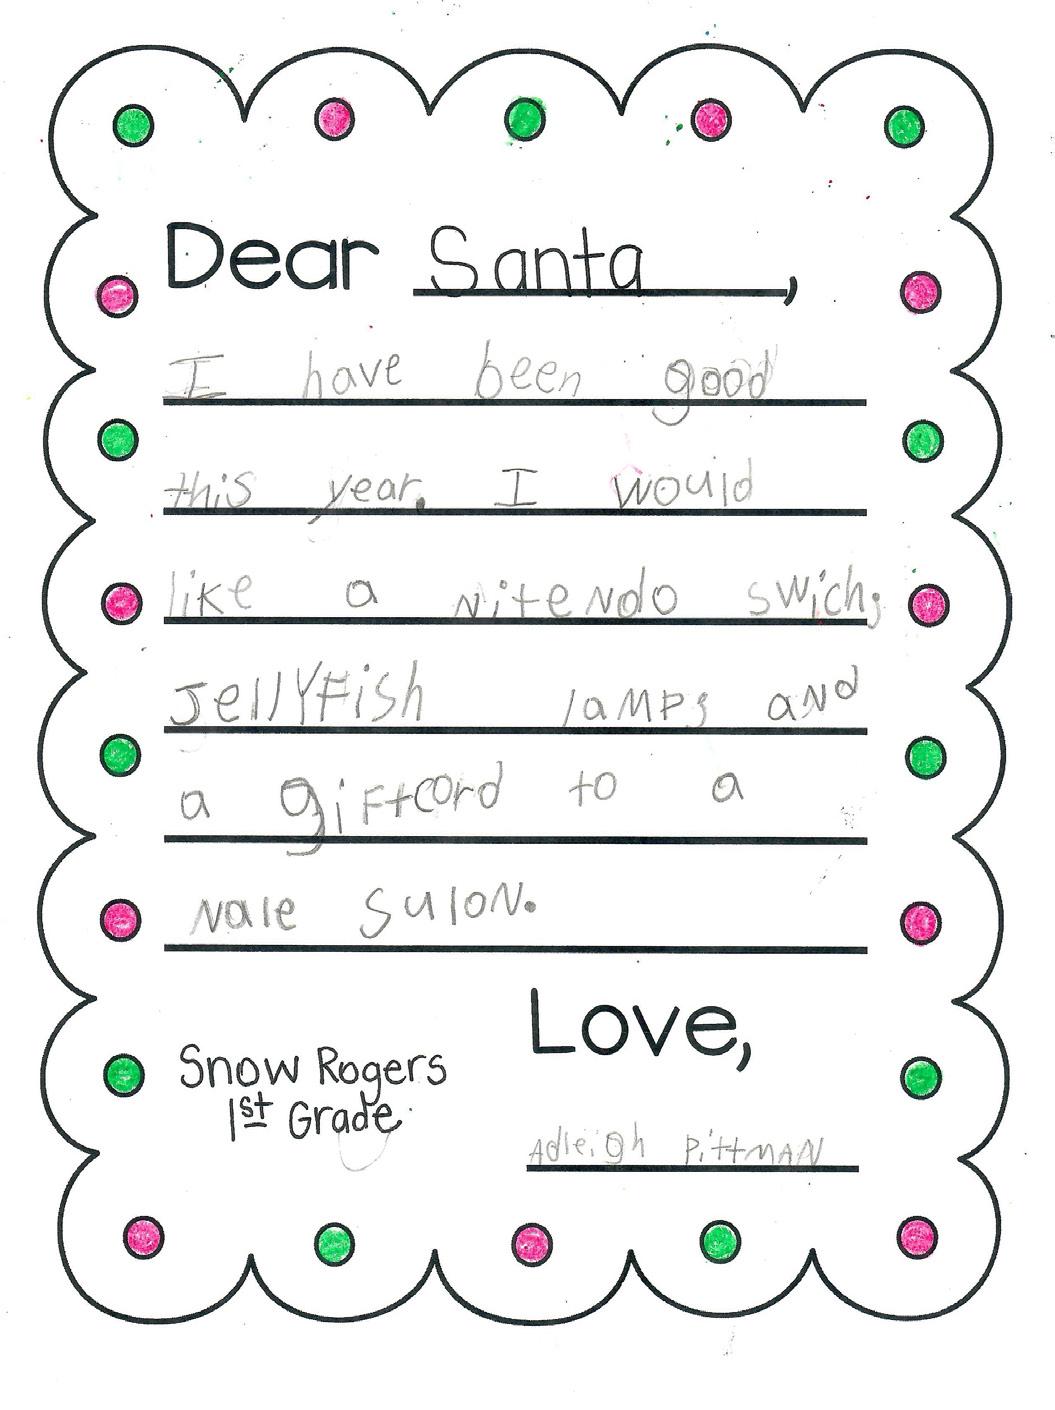 Dear Santa,
I have been good
this year. I would
like a Nitendo swich,
JellyFish lamps and
a giftcord to a
Nale sulon.
Love,
Snow Rogers
1st Grade
Adleigh Pittman